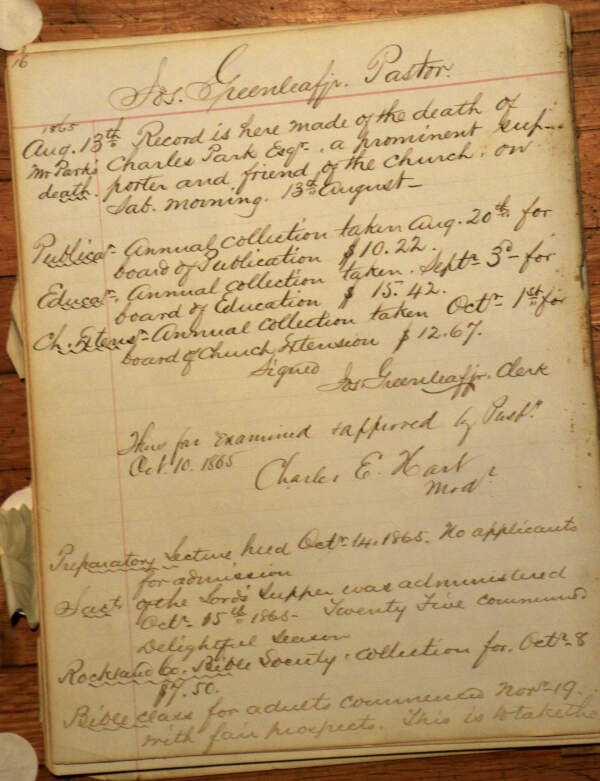 16
Jos. Greenleaf jr. Pastor.
1865
Aug. 13th Record is here made of the death of
Mr Park's Charles Park Esqr. a prominent sup-
death. porter and friend of the church, on
Sab. morning. 13th August—
Publicat- Annual collection taken Aug. 20th for
board of Publication $10.22.
Educat- Annual collection taken. Septr 3d- for
board of Education $ 15.42.
Ch. Extens- Annual collection taken Octr- 1st for
board of Church Extension $ 12.67.
Signed
Jos. Greenleaf jr. Clerk
Thus far examined & approved by Presby
Oct. 10. 1865
Charles E. Hart
Modr
Preparatory Lecture held Octr- 14. 1865. No applicants
for admission
Sact. of the Lord's Supper was administered
Octr- 15th 1865- Twenty Five communed
Delightful Season
Rockland Co. Bible Society, collection for. Octr- 8
$7.50.
Bible class for adults commenced Novr- 19.
with fair prospects. This is to take the